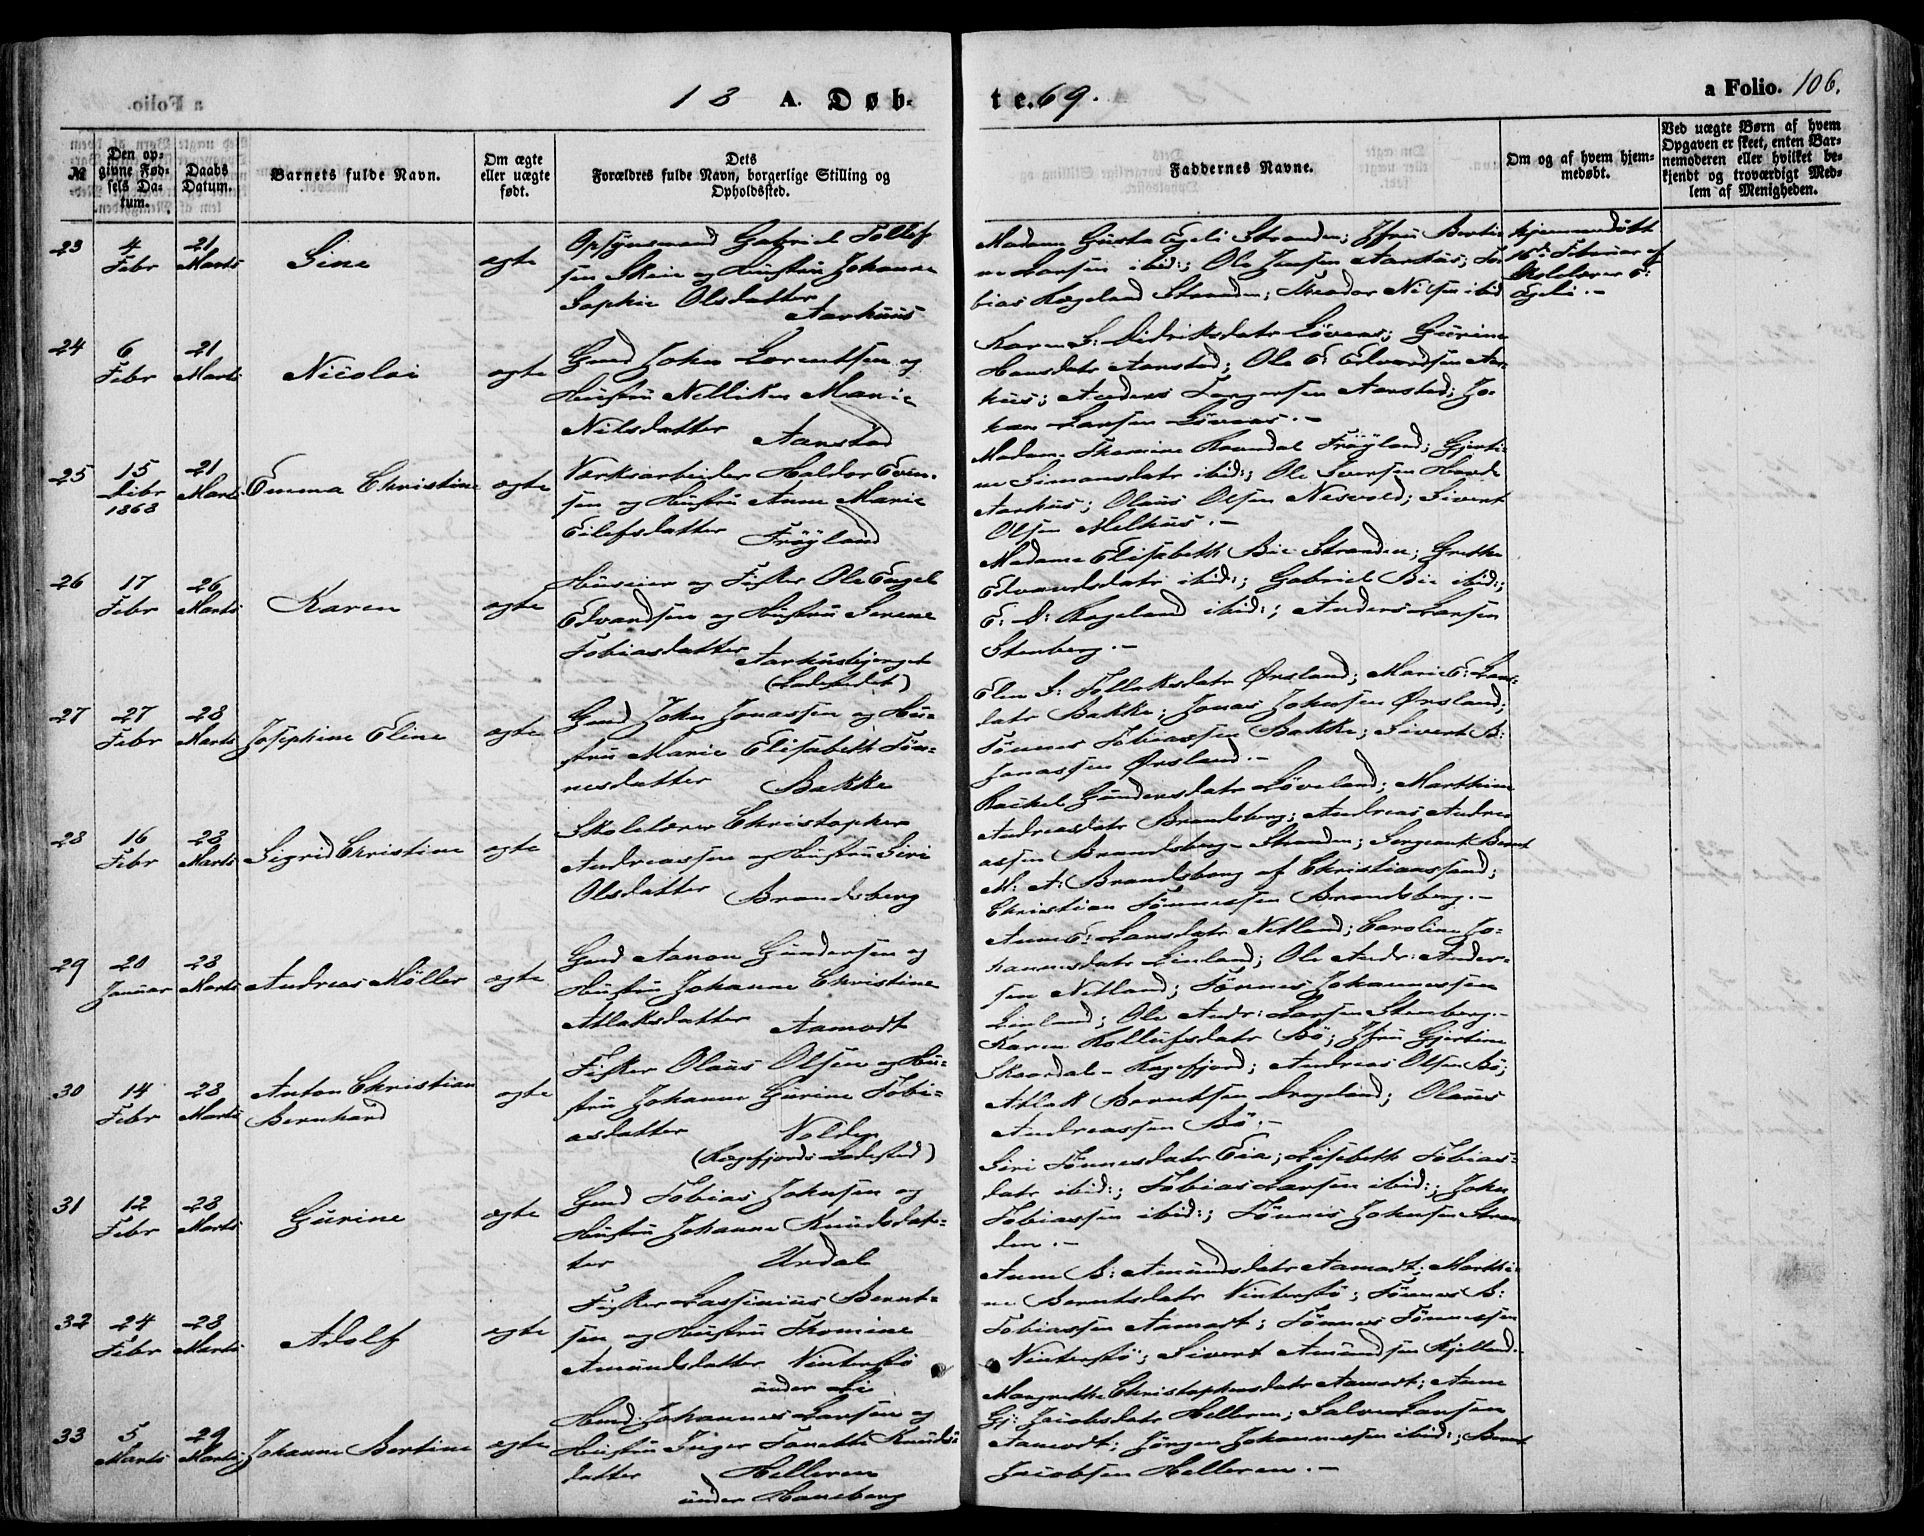 18 A. Døb-
te. 69.
a Folio. 106.
№
Den op-
givne Fød-
sels Da-
tum.
Daabs
Datum.
Barnets fulde Navn.
Om ægte
eller uægte
født.
Dets
Forældres fulde Navn, borgerlige Stilling og
Opholdssted.
Faddernes Navne.
Om og af hvem hjem-
medøbt.
Ved uægte Børn af hvem
Opgaven er skeet, enten Bar-
nemoderen eller hvilket be-
kjendt og troværdigt Med-
lem af Menigheden.
23
4 Febr
21 Marts
Sine
ægte
Opsynsmand Gabriel Tollef
sen Skeie og Hustru Johanne
Sophie Olsdatter
Aarhuus
Madame Gusta Egeli Stranden; Jfru Berti-
ne Larsen ibid:; Ole Jensen Aarhus; To-
bias Rægeland Stranden; Theodor Nilsen ibid
hjemmedöbt
16de Februar af
Skolelærer E:
Egeli.-
24
6 Febr
21 Marts
Nicolai
ægte
Gmd John Lorentsen og
Hustru Nelliken Marie
Nilsdatter
Aanstad
Karen S: Didriksdatr Lövaas; Gurine
Hansdatr Aanstad; Ole E: Edvardsen Aar-
hus; Anders Tørgersen Aanstad; Jo-
han Larsen Lövaas.-
25
15 Debr 1868
21 Marts
Emma Christine
ægte
Værksarbeider Haldor Even-
sen og Hustru Anne Marie
Eilefsdatter
Fröyland
Madame Thomine Ravndal Fröyland; Gjerti-
ne Simonsdatr ibid:; Ole Sversen
Aarhus; Olaus Olsen Nesvold; Sivert
Olsen Melhus.-
26
17 Febr
26 Marts
Karen
ægte
Huseier og Fisker Ole Engel
Edvardsen og Hustru Serene
Tobiasdatter
Aarhusbjerget
(Ladestedet)
Madame Elisabeth Bie Stranden; Grethe
Edvardsdatr ibid:; Gabriel Bie ibid:;
E: D: Rægeland ibid:; Anders Larsen
Stenberg.-
27
27 Febr
28 Marts
Josephine Eline
ægte
Gmd John Jonassen og Hu-
stru Marie Elisabeth Tön-
nesdatter
Bakke
Elen S: Tollaksdatr Ørsland; Marie E: Lars-
datr Bakke; Jonas Johnsen Ørsland;
Tönnes Tobiassen Bakke; Sivert B:
Jonassen Ørsland.-
28
16 Febr
28 Marts
Sigrid Christine
ægte
Skolelærer Christopher
Andreassen og Hustru Siri
Olsdatter
Brandsberg
Rachel Gundersdatr Löveland; Marthine
Andreasdatr Brandsberg; Andreas Andre-
assen Brandsberg- Stranden; Sergeant Bernt
M: A: Brandsberg af Christianssand;
Christian Tönnessen Brandsberg.-
29
20 Januar
28 Marts
Andreas Möller
ægte
Gmd Aanon Gundersen og
Hustru Johanne Christine
Atlaksdatter
Aamodt
Anne E: Larsdatr Netland; Caroline Jo-
hannesdatr Linland; Ole Andr: Ander-
sen Netland; Tönnes Johannessen
Linland; Ole Andr: Larsen Stenberg.-
30
14 Febr
28 Marts
Anton Christian
Bernhard
ægte
Fisker Olaus Olsen og Hu-
stru Johanne Gurine Tobi-
asdatter
Nolden
(Rægefjords Ladested)
Karen Rollufsdatr Bö; Jfru Gjertine
Skaardal- Rægefjord; Andreas Olsen Bö;
Atlak Berntsen Drageland; Olaus
Andreassen Bö.-
31
12 Febr
28 Marts
Gurine
ægte
Gmd Tobias Johnsen og
Hustru Johanne Knudsdat-
ter
Urdal
Siri Tönnesdatr Eia; Lisebeth Tobias-
datr ibid:; Tobias Larsen ibid:; John
Tobiassen ibid:; Tönnes Johnsen Stran
den.-
32
24 Febr
28 Marts
Adolf
ægte
Fisker Lassinius Bernt-
sen og Hustru Thomine
Amundsdatter Vinterstö
under Li
Anne B: Amundsdatr Aamodt; Marthi-
ne Berntsdatr Vinterstö; Tönnes B:
Tobiassen Aamodt; Tönnes Tönnessen
Vinterstö; Sivert Amundsen Kjelland.-
33
5 Marts
29 Marts
Johanne Bertine
ægte
Hmd Johannes Larsen og
Hustru Inger Tonette Knuds-
datter
Helleren
under Haneberg
Margrethe Christophersdatr Aamodt; Anne
Gj: Jacobsdatr Helleren; Salve Larsen
Aamodt; Jörgen Johannessen ibid:; Bernt
Jacobsen Helleren.-